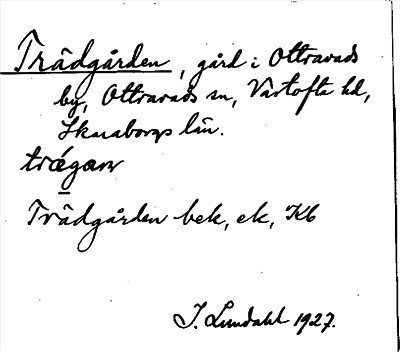 Trädgården, gård i Ottravads
by, Ottravads sn, Vartofta hd,
Skaraborgs län.
Trädgården bek, ek, Kb
I. Lundahl 1927.